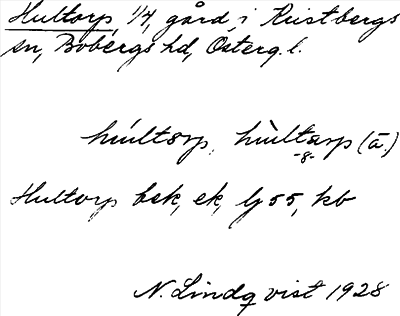 Hultorp, 1/4, gård, i Kristbergs
sn, Bobergs hd, Österg. l.
húltørp, hùltarp (ā.)
-8-
Hultorp bsk, ek, lj 55, kb
N. Lindqvist 1928